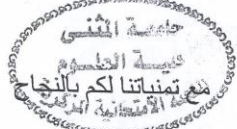 جامعة المثنى
كلية العلوم
مع تمنياتنا لكم بالنجاح
اللجنة الامتحانية المركزية